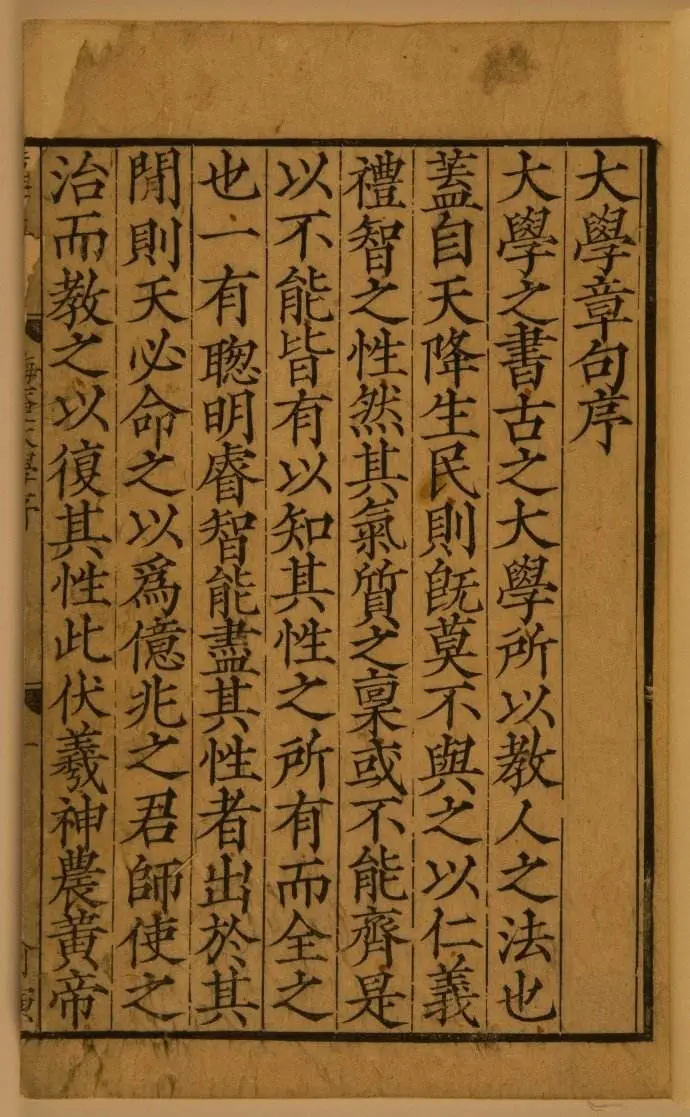 大學章句序
大學之書古之大學所以教人之法也
蓋自天降生民則旣莫不與之以仁義
禮智之性然其氣質之稟或不能齊是
以不能皆有以知其性之所有而全之
也一有聦明睿智能盡其性者出於其
閒則天必命之以爲億兆之君師使之
治而教之以復其性此伏羲神農黃帝